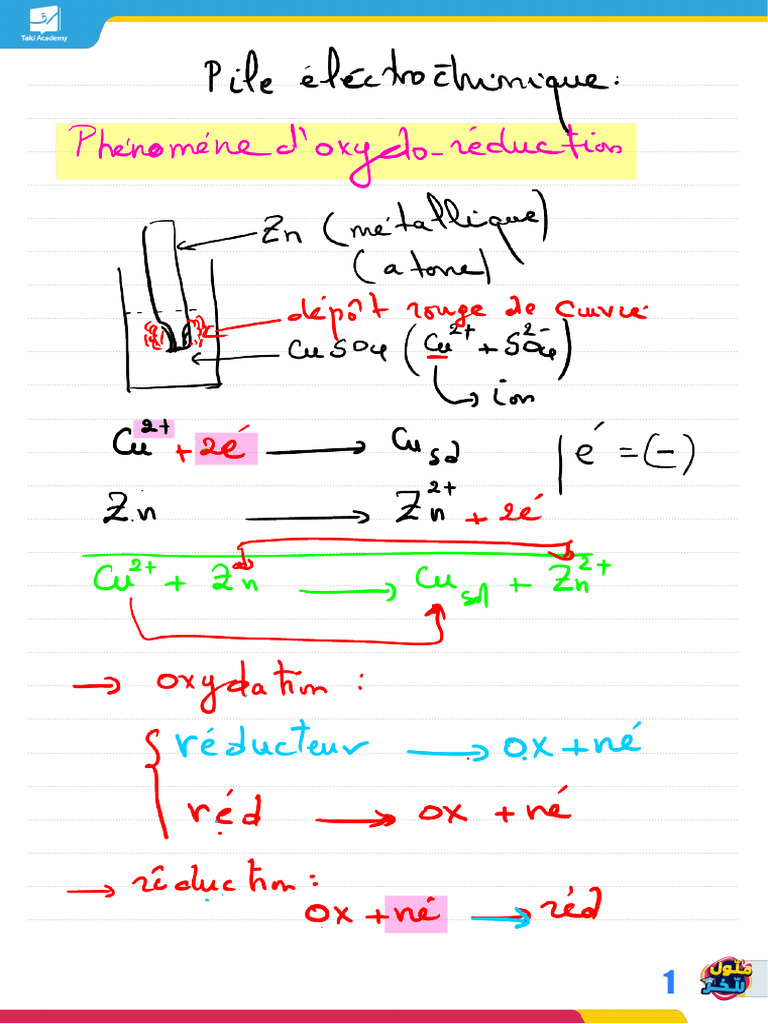 Taki Academy
Pile électrochimique :
Phénoméne d'oxydo-réduction
Zn (métallique)
(atome)
dépôt rouge de cuivre
CuSO₄ (Cu²⁺ + SO₄²⁻)
ion
Cu²⁺ + 2é → Cu sd | é = (-)
Zn → Zn²⁺ + 2é
Cu²⁺ + Zn → Cu sd + Zn²⁺
→ oxydation :
réducteur → ox + né
réd → ox + né
→ réduction :
ox + né → réd
1